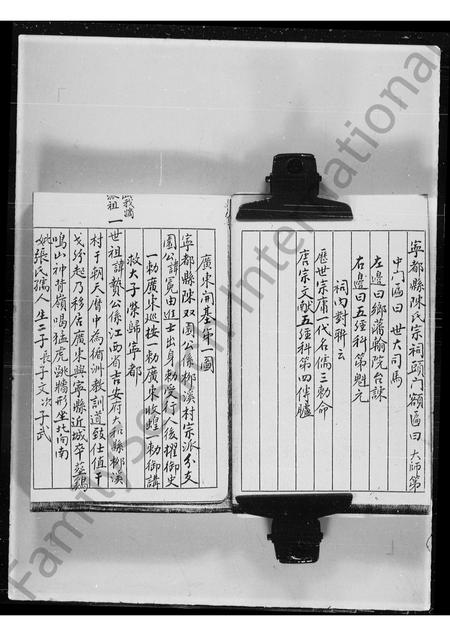 寧都縣陳氏宗祠頭門額匾曰 大師第
中門匾曰 世大司馬
左邊曰鄉藩翰院台諫
右邊曰五經科第魁元
祠內對聯云
歷世宗庸一代名儒三勅命
唐宗文獻五經科第四傳臚
廣東開基年圖
寧都縣陳双園公係柳溪村宗派分支
園公諱寬由進士出身勅受行人後擢御史
一勅廣東巡按一勅廣東收蝗一勅御講
救大子榮歸寧都
一世祖諱贄公係江西省吉安府大和縣柳溪
派祖
村于朝天曆中為循洲教訓道致仕值干
戈紛起乃移居廣東興寧縣近城卒葬鷄
鳴山神背嶺喝猛虎跳牆形坐北向南
妣張氏孺人 生二子 長子文 次子武
FamilySearch International